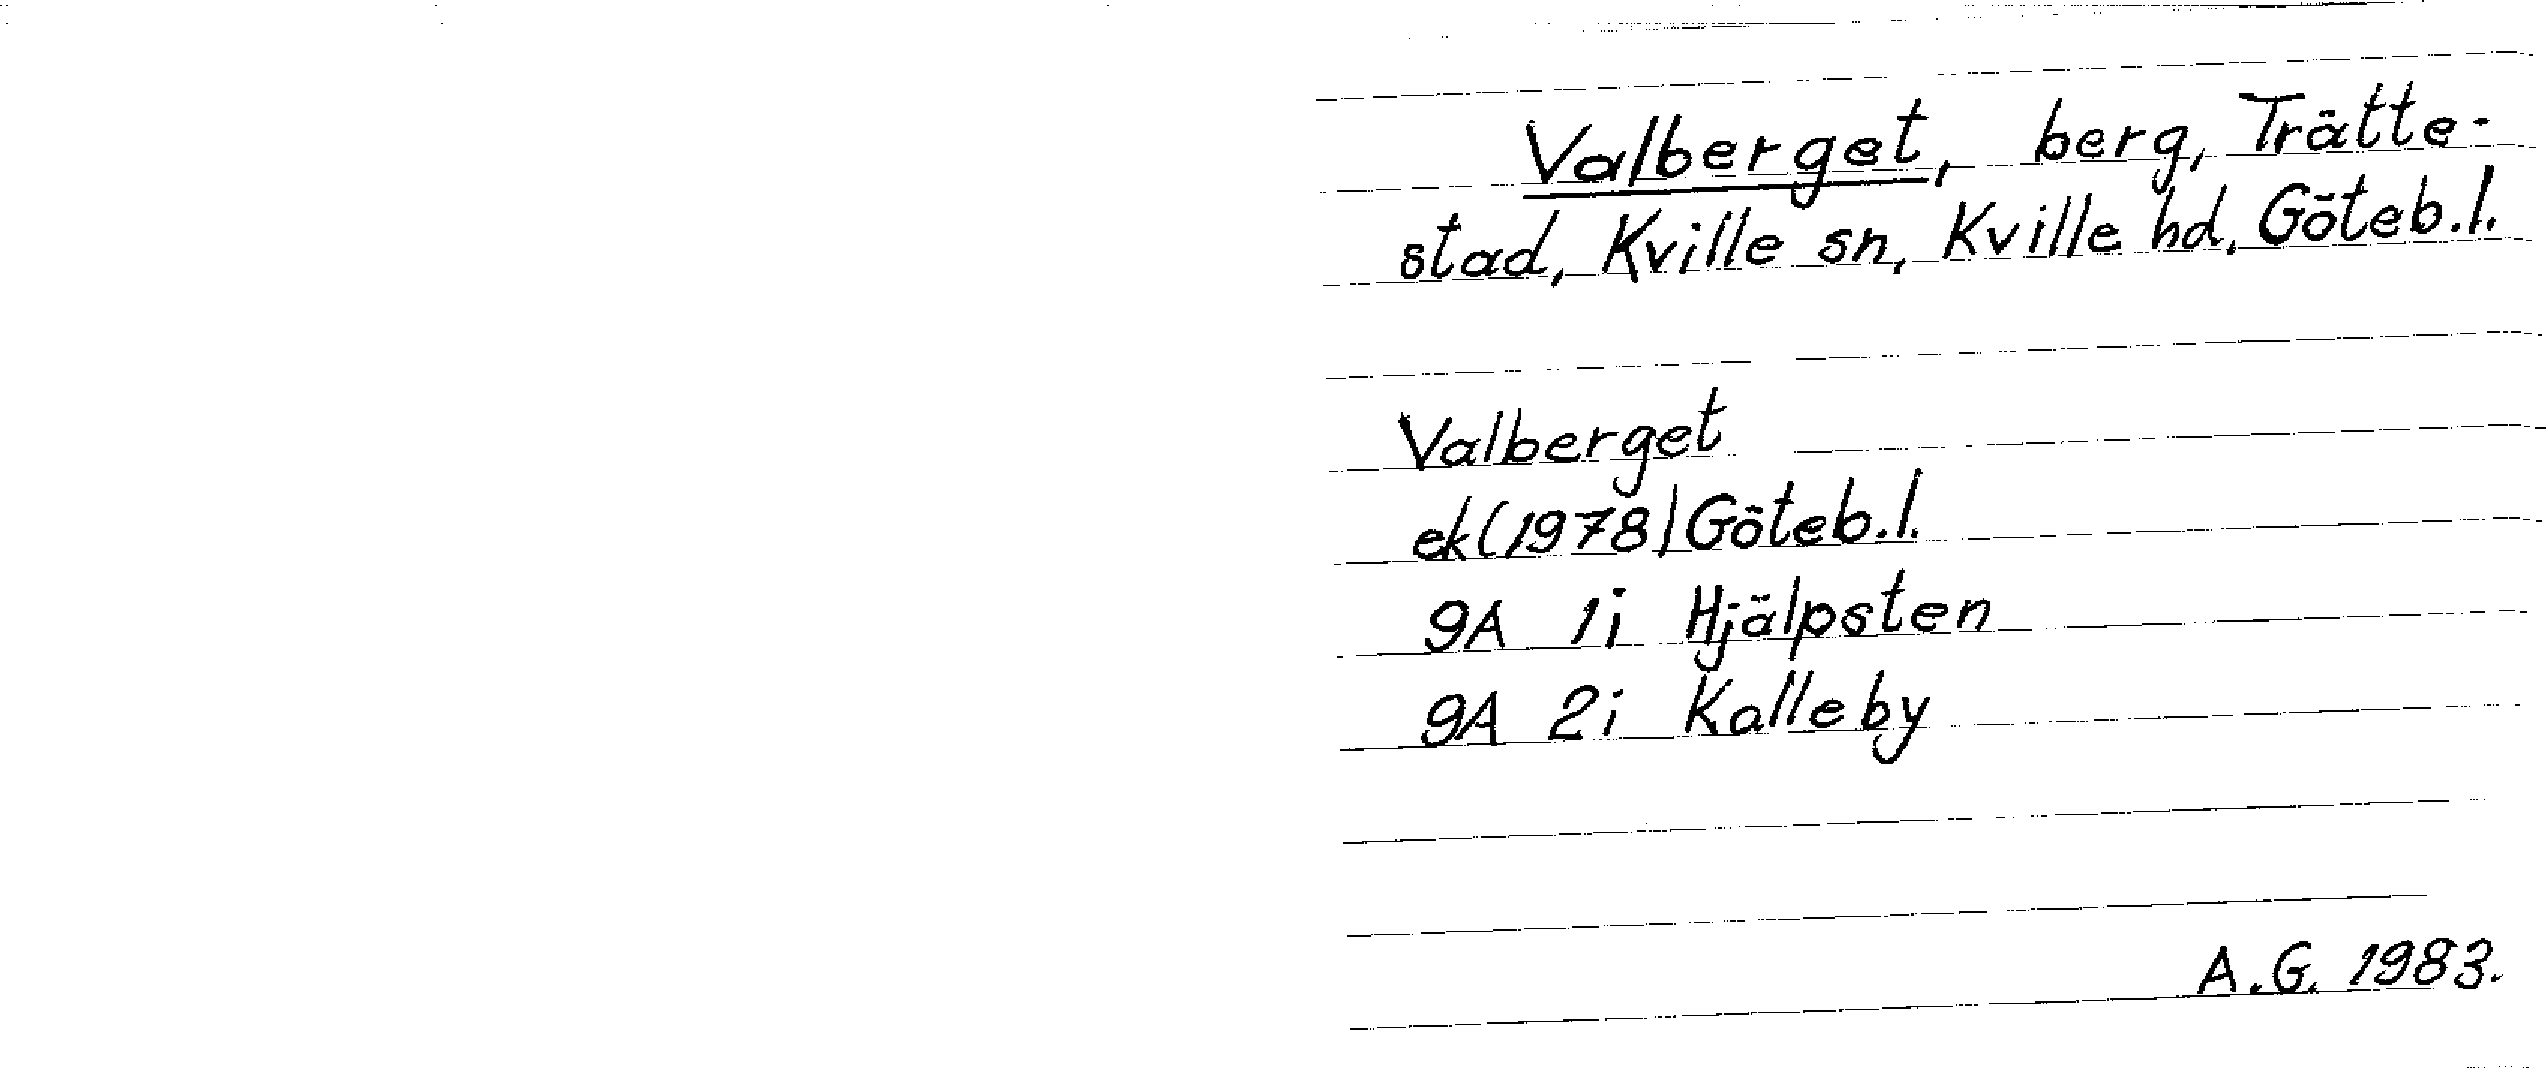 Valberget, berg, Trätte-
stad, Kville sn, Kville hd, Göteb.l.
Valberget
ek(1978) Göteb.l.
9A 1i Hjälpsten
9A 2i Kalleby
A.G. 1983.